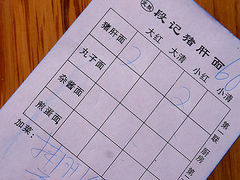 段记猪肝面
大红 大清 小红 小清
猪肝面
丸子面 2
杂酱面 2
煎蛋面
加菜:
第一联 厨房